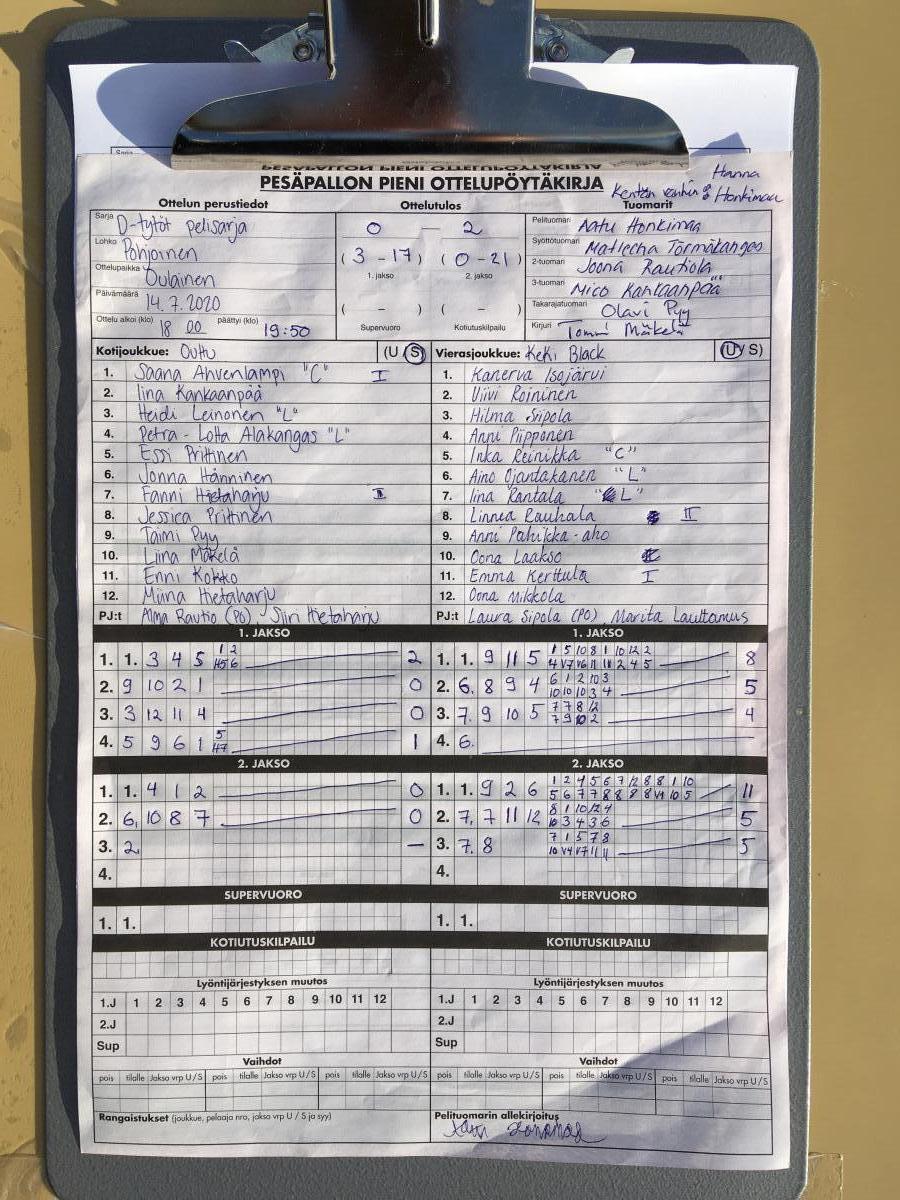 PESÄPALLON PIENI OTTELUPÖYTÄKIRJA
Hanna
Kentän vanhin: Honkimaa
Ottelun perustiedot
Sarja D-tytöt pelisarja
Lohko Pohjoinen
Ottelupaikka Oulainen
Päivämäärä 14.7.2020
Ottelu alkoi (klo) 18 00 päättyi (klo) 19:50
Ottelutulos
0 – 2
(3 - 17) (0 - 21)
1. jakso 2. jakso
( - ) ( - )
Supervuoro Kotiutuskilpailu
Tuomarit
Pelituomari Aatu Honkimaa
Syöttötuomari Matleena Törmäkangas
2-tuomari Joona Rautiola
3-tuomari Mico Kankaanpää
Takarajatuomari Olavi Pyy
Kirjuri Tommi Mäkelä
Kotijoukkue: Outtu (U S)
1. Saana Ahvenlampi "C" I
2. Iina Kankaanpää
3. Heidi Leinonen "L"
4. Petra-Lotta Alakangas "L"
5. Essi Prittinen
6. Jonna Hänninen
7. Fanni Hietaharju I
8. Jessica Prittinen
9. Taimi Pyy
10. Liina Mäkelä
11. Enni Kokko
12. Miina Hietaharju
PJ:t Alma Rautio (PO) Siiri Hietaharju
Vierasjoukkue: KeKi Black (U S)
1. Kanerva Isojärvi
2. Viivi Roininen
3. Hilma Siipola
4. Anni Piipponen
5. Inka Reinikka "C"
6. Aino Ojantakanen "L"
7. Iina Rantala "L"
8. Linnea Rauhala II
9. Anni Pahikka-aho
10. Oona Laakso
11. Emma Kerttula I
12. Oona Mikkola
PJ:t Laura Sipola (PO), Marita Lauttamus
1. JAKSO
1. 1. 3 4 5 2
2. 9 10 2 1 0
3. 3 12 11 4 0
4. 5 9 6 1 1
1. JAKSO
1. 1. 9 11 5 1 5 10 8 1 10 12 2 8
2. 6. 8 9 4 6 1 2 10 3 5
10 10 10 3 4
3. 7. 9 10 5 7 7 8 12 4
7 9 10 2
4. 6.
2. JAKSO
1. 1. 4 1 2 0
2. 6, 10 8 7 0
3. 2. –
4.
2. JAKSO
1. 1. 9 2 6 1 2 4 5 6 7 12 8 8 1 10 11
2. 7. 7 11 12 8 1 10 12 4 5
10 3 4 3 6
3. 7. 8 7 1 5 7 8 5
4.
SUPERVUORO
1. 1.
SUPERVUORO
1. 1.
KOTIUTUSKILPAILU
KOTIUTUSKILPAILU
Lyöntijärjestyksen muutos
1.J 1 2 3 4 5 6 7 8 9 10 11 12
2.J
Sup
Lyöntijärjestyksen muutos
1.J 1 2 3 4 5 6 7 8 9 10 11 12
2.J
Sup
Vaihdot
pois tilalle Jakso vrp U/S pois tilalle Jakso vrp U/S pois tilalle Jakso vrp U/S
Vaihdot
pois tilalle Jakso vrp U/S pois tilalle Jakso vrp U/S pois tilalle Jakso vrp U/S
Rangaistukset (joukkue, pelaaja nro, jakso vrp U / S ja syy)
Pelituomarin allekirjoitus